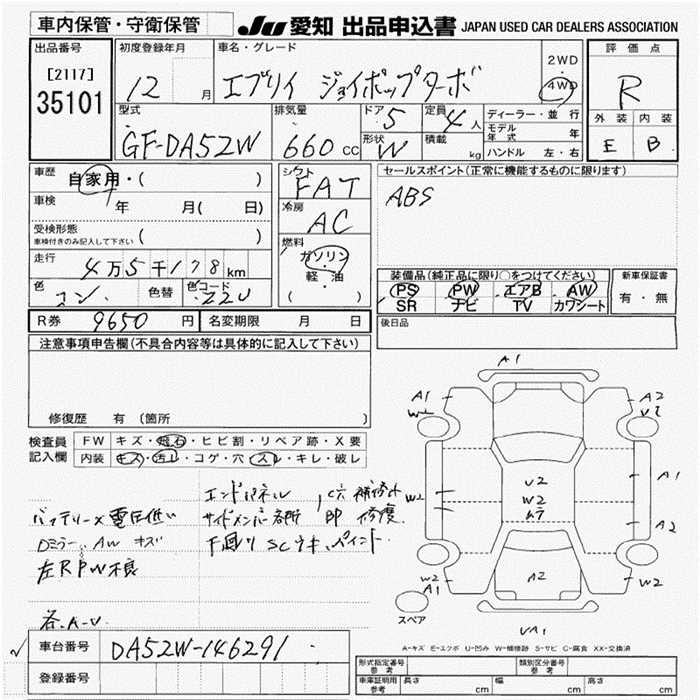 車内保管・守衛保管
JU 愛知 出品申込書 JAPAN USED CAR DEALERS ASSOCIATION
出品番号
[2117]
35101
初度登録年月
12 月
車名・グレード
エブリイ ジョイポップターボ
2WD
・
4WD
評価点
R
外装 内装
E B
型式
GF-DA52W
排気量
660 cc
ドア 5
形状 W
定員 4人
積載 kg
ディーラー・並行
モデル年式 年
ハンドル 左・右
車歴 自家用・( )
車検 年 月( 日)
受検形態
車検付きのみ記入して下さい ( )
走行 4万5千178km
色 コン
色替
色コード Z2U
シフト FAT
冷房 AC
燃料
ガソリン
・
軽・油
( )
セールスポイント(正常に機能するものに限ります)
ABS
装備品(純正品に限り〇をつけてください)
PS PW エアB AW
SR ナビ TV カワシート
新車保証書
有・無
後日品
R券 9650 円 名変期限 月 日
注意事項申告欄(不具合内容等は具体的に記入して下さい)
修復歴 有(箇所 )
検査員 FW キズ・飛石・ヒビ割・リペア跡・X要
記入欄 内装 キズ・汚レ・コゲ・穴・スレ・キレ・破レ
エンドパネル
バッテリー× 電圧低い サイドメンバー
Dミラー、AW キズ 下回り SCウキ、ペイント
左RPW不良
各A-U
車台番号 DA52W-146291
登録番号
A1
A1 A2
W2 U2
U2
W2
W2
A1
A2
A2
W2 W2
A1
スペア
UA1
A-キズ E-エクボ U-凹み W-補修跡 S-サビ C-腐食 XX-交換済
形式指定番号 参考 類別区分番号 参考
車庫証明用 参考 長さ cm 幅 cm 高さ cm